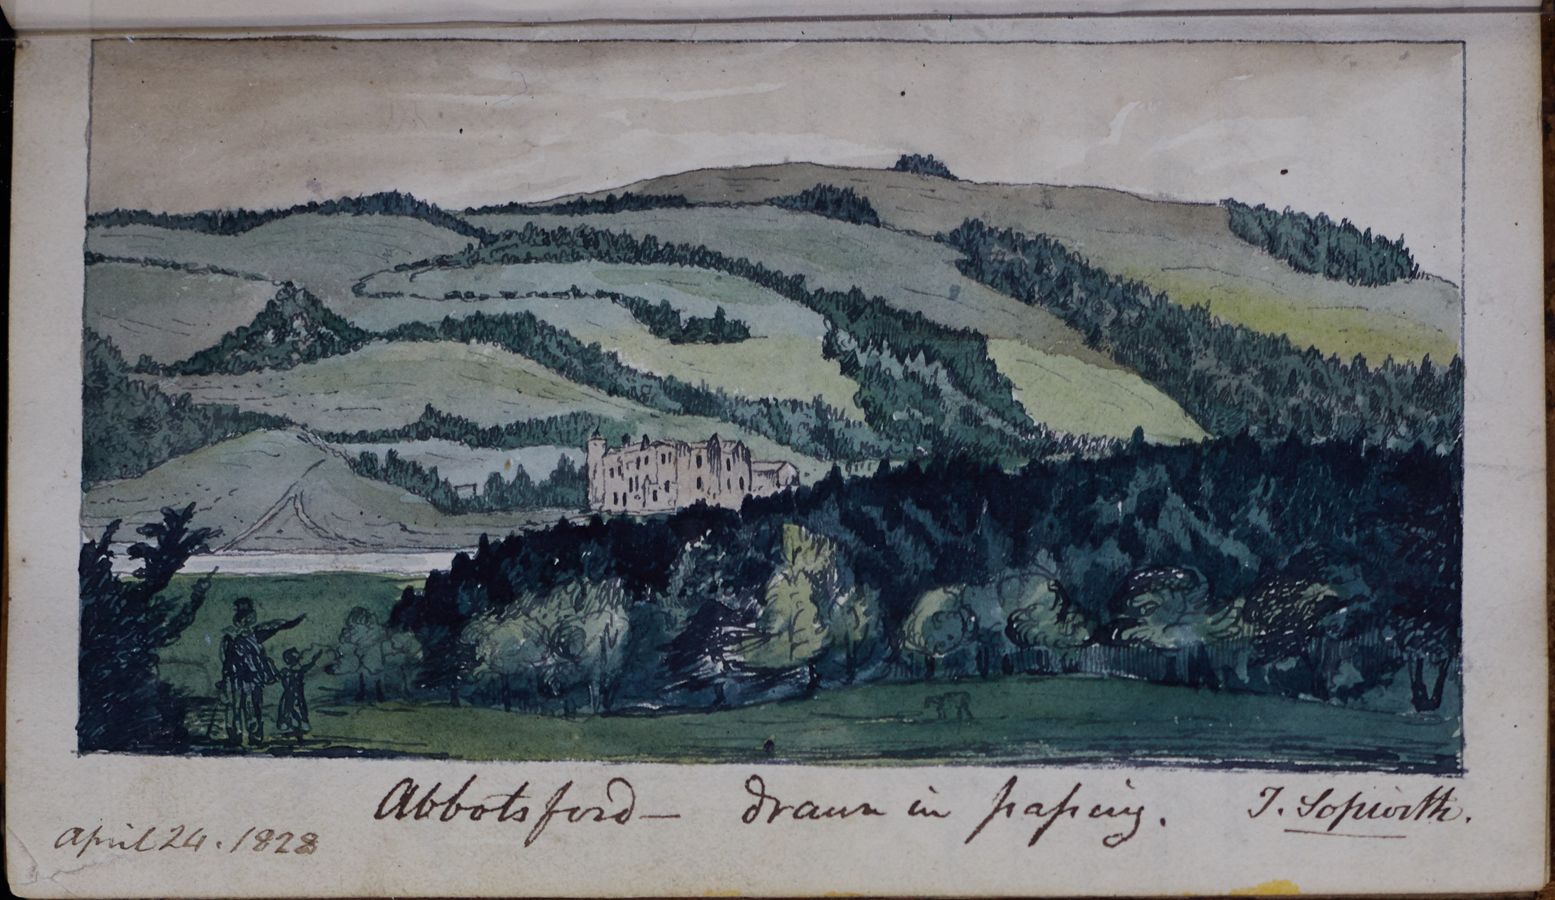 Abbotsford — drawn in passing. T. Sopwith.
April 24. 1828